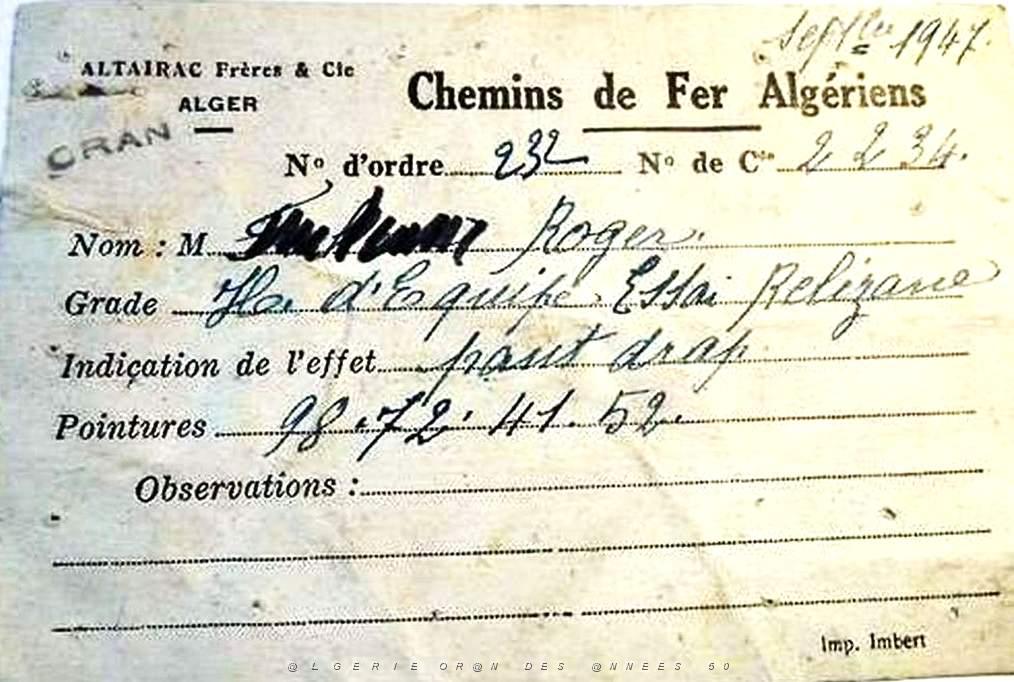 Septbre 1947.
ALTAIRAC Frères & Cie
ALGER
ORAN
Chemins de Fer Algériens
N° d'ordre 232 N° de Cte 2 2 34.
Nom : M Roger.
Grade d'Equipe Essai Relizane
Indication de l'effet pant drap
Pointures 98.72.41.52.
Observations :
Imp. Imbert
@LGERIE OR@N DES @NNEES 50